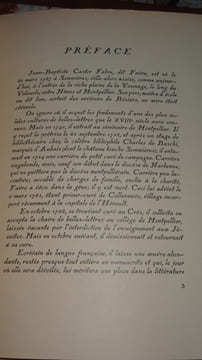 PRÉFACE
Jean-Baptiste Castor Fabre, dit Favre, est né le
à Sommières, ville alors active, comme aujour-
d'hui, à l'entrée de la riche plaine de la Vaunage, le long du
Vidourle, entre Nîmes et Montpellier. Son père, maître d'école
au dit lieu, sortait des environs de Béziers, sa mère était
On ignore où il acquit les fondements d'une des plus so-
lides cultures de belles-lettres que le XVIIIe siècle avait connus.
Mais en 1747, il entrait au séminaire de Montpellier. Il
y reçut la prêtrise le 21 septembre 1752, et, après un stage de
bibliothécaire chez le célèbre bibliophile Charles de Baschi,
marquis d'Aubais (dont le château touche Sommières), il entre-
prit en 1754 une carrière de petit curé de campagne. Carrière
vagabonde, mais, sauf un bref début dans le diocèse de Narbonne,
qui ne quittera pas le diocèse montpelliérain. Carrière peu lu-
crative; accablé de charges de famille, enclin à la charité,
Favre a vécu dans la gêne; il y est mort. Ceci lui advint le
2 mars 1783, étant prieur-curé de Celleneuve, village incor-
poré récemment à la capitale de l'Hérault.
En octobre 1762, se trouvant curé au Crès, il sollicita ou
accepta la chaire de belles-lettres au collège de Montpellier,
laissée vacante par l'interdiction de l'enseignement aux Jé-
suites. Mais en octobre suivant, il démissionnait et retournait
à sa cure.
Écrivain de langue française, il laisse une œuvre abon-
dante, restée presque tout entière en manuscrits et qui, le jour
où elle sera dévoilée, lui méritera une place dans la littérature
5